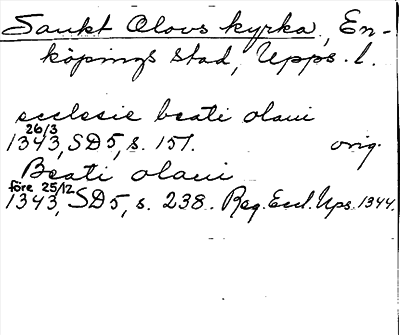 Sankt Olovs kyrka, En-
köpings stad, Upps. l.
ecclesie beati olaui
26/3
1343, SD5, s. 151. orig.
Beati olaui
före 25/12
1343, SD5, s. 238. Reg. Eccl. Ups. 1344.